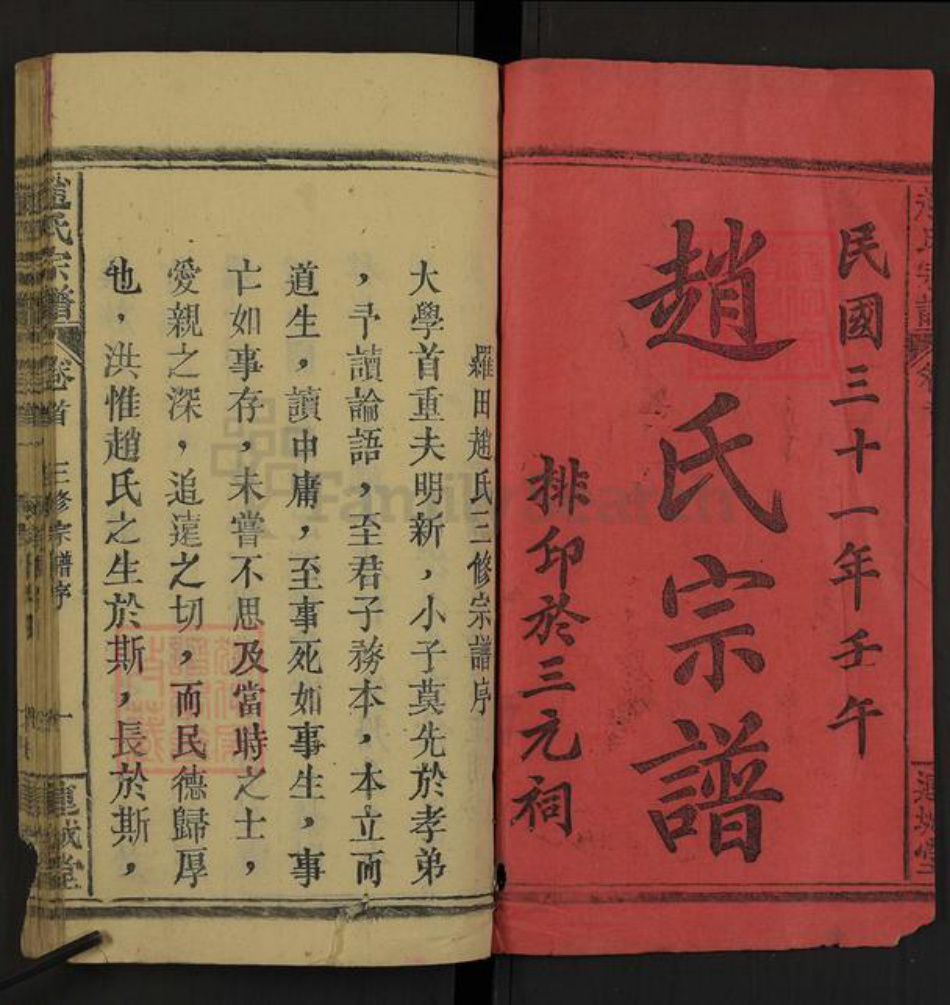 民國三十一年壬午
趙氏宗譜
排印於三元祠
羅田趙氏三修宗譜序
大學首重夫明新，小子莫先於孝弟
，予讀論語，至君子務本，本立而
道生，讀中庸，至事死如事生，事
亡如事存，未嘗不思及當時之士，
愛親之深，追遠之切，而民德歸厚
也，洪惟趙氏之生於斯，長於斯，
趙氏宗譜 卷首 三修宗譜序 一